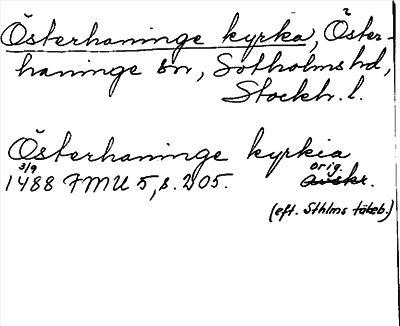 Österhaninge kyrka, Öster-
haninge sn, Sotholms hd,
Stockh. l.
Österhaninge kyrkia
3/9 orig.
1488 FMU 5, s. 205. avskr.
(eft. Sthlms täkeb.)